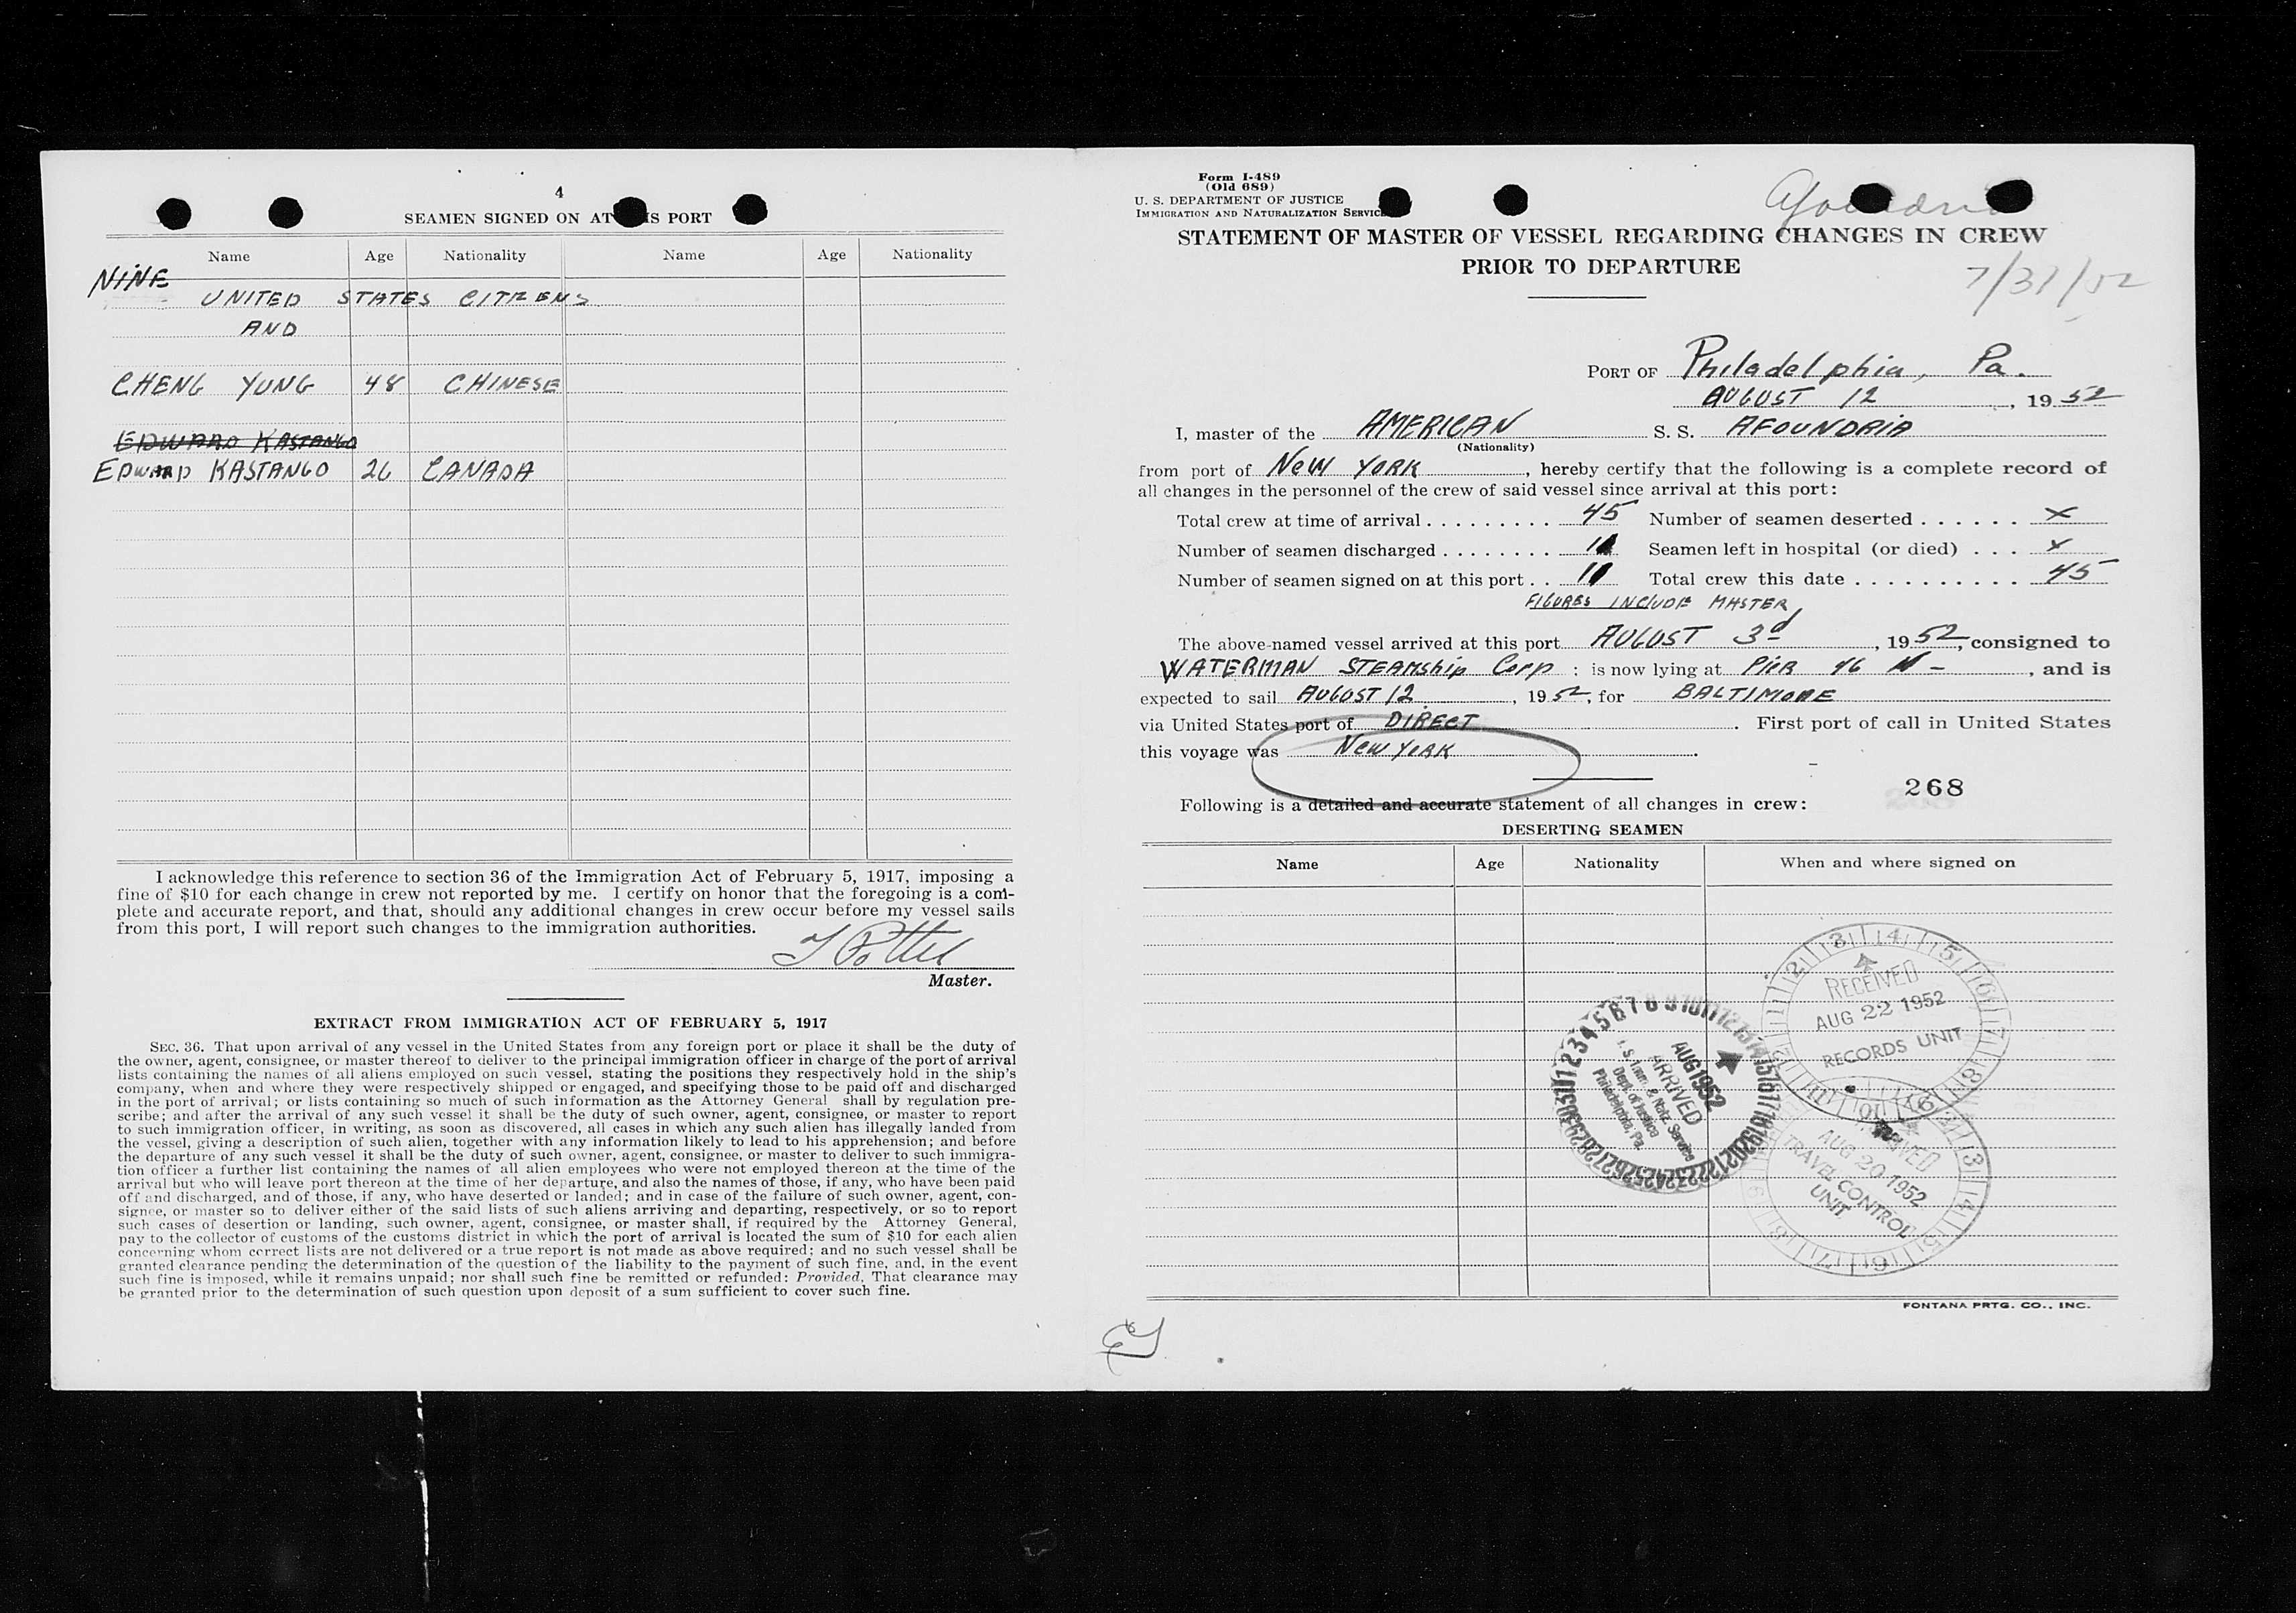 4
SEAMEN SIGNED ON AT THIS PORT
Name Age Nationality Name Age Nationality
NINE
UNITED STATES CITIZENS
AND
CHENG YUNG 48 CHINESE
EDWARD KASTANGO
EDWARD KASTANGO 26 CANADA
I acknowledge this reference to section 36 of the Immigration Act of February 5, 1917, imposing a
fine of $10 for each change in crew not reported by me. I certify on honor that the foregoing is a com-
plete and accurate report, and that, should any additional changes in crew occur before my vessel sails
from this port, I will report such changes to the immigration authorities.
Master.
EXTRACT FROM IMMIGRATION ACT OF FEBRUARY 5, 1917
SEC. 36. That upon arrival of any vessel in the United States from any foreign port or place it shall be the duty of
the owner, agent, consignee, or master thereof to deliver to the principal immigration officer in charge of the port of arrival
lists containing the names of all aliens employed on such vessel, stating the positions they respectively hold in the ship's
company, when and where they were respectively shipped or engaged, and specifying those to be paid off and discharged
in the port of arrival; or lists containing so much of such information as the Attorney General shall by regulation pre-
scribe; and after the arrival of any such vessel it shall be the duty of such owner, agent, consignee, or master to report
to such immigration officer, in writing, as soon as discovered, all cases in which any such alien has illegally landed from
the vessel, giving a description of such alien, together with any information likely to lead to his apprehension; and before
the departure of any such vessel it shall be the duty of such owner, agent, consignee, or master to deliver to such immigra-
tion officer a further list containing the names of all alien employees who were not employed thereon at the time of the
arrival but who will leave port thereon at the time of her departure, and also the names of those, if any, who have been paid
off and discharged, and of those, if any, who have deserted or landed; and in case of the failure of such owner, agent, con-
signee, or master so to deliver either of the said lists of such aliens arriving and departing, respectively, or so to report
such cases of desertion or landing, such owner, agent, consignee, or master shall, if required by the Attorney General,
pay to the collector of customs of the customs district in which the port of arrival is located the sum of $10 for each alien
concerning whom correct lists are not delivered or a true report is not made as above required; and no such vessel shall be
granted clearance pending the determination of the question of the liability to the payment of such fine, and, in the event
such fine is imposed, while it remains unpaid; nor shall such fine be remitted or refunded: Provided, That clearance may
be granted prior to the determination of such question upon deposit of a sum sufficient to cover such fine.
Form I-489
(Old 689)
U. S. DEPARTMENT OF JUSTICE
IMMIGRATION AND NATURALIZATION SERVICE
STATEMENT OF MASTER OF VESSEL REGARDING CHANGES IN CREW
PRIOR TO DEPARTURE
7/31/52
PORT OF Philadelphia, Pa.
AUGUST 12, 1952
I, master of the AMERICAN S. S. AFOUNDRIA
(Nationality)
from port of NEW YORK, hereby certify that the following is a complete record of
all changes in the personnel of the crew of said vessel since arrival at this port:
Total crew at time of arrival 45 Number of seamen deserted X
Number of seamen discharged 11 Seamen left in hospital (or died) X
Number of seamen signed on at this port 11 Total crew this date 45
FIGURES INCLUDE MASTER
The above-named vessel arrived at this port AUGUST 3d, 1952, consigned to
WATERMAN STEAMSHIP Corp : is now lying at PIER 46 N -, and is
expected to sail AUGUST 12, 1952, for BALTIMORE
via United States port of DIRECT. First port of call in United States
this voyage was NEW YORK.
268
Following is a detailed and accurate statement of all changes in crew:
DESERTING SEAMEN
Name Age Nationality When and where signed on
RECEIVED
AUG 22 1952
RECORDS UNIT
AUG 1952
ARRIVED
U. S. Imm. & Natz. Service
Dept. of Justice
Philadelphia, Pa.
RECEIVED
AUG 20 1952
TRAVEL CONTROL
UNIT
FONTANA PRTG. CO., INC.